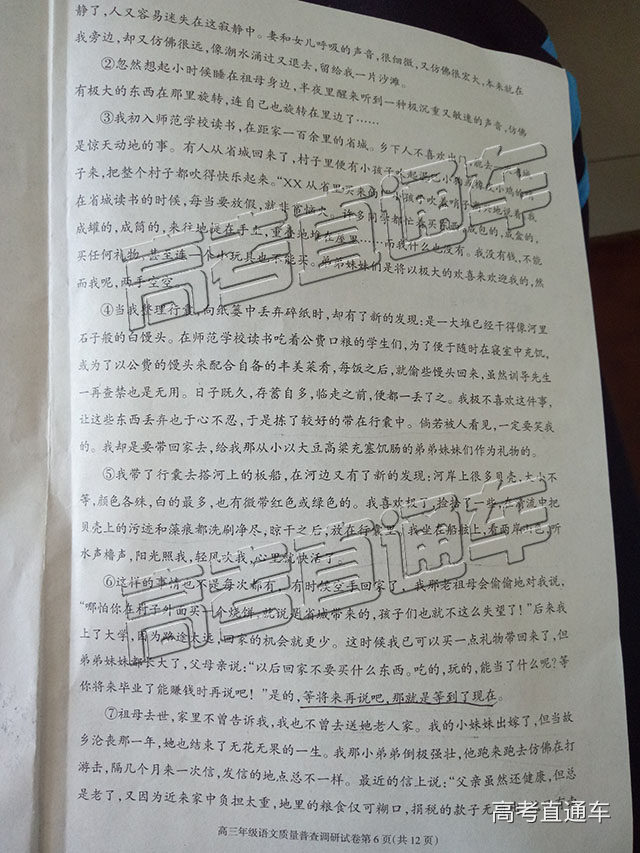 静了,人又容易迷失在这寂静中。妻和女儿呼吸的声音,很细微,又仿佛很宏大,本来就在
我旁边,却又仿佛很远,像潮水涌过又退去,留给我一片沙滩。
②忽然想起小时候睡在祖母身边,半夜里醒来听到一种极沉重又敏速的声音,仿佛
有极大的东西在那里旋转,连自己也旋转在里边了……
③我初入师范学校读书,在距家一百余里的省城。乡下人不喜欢出门,能去
是惊天动地的事。有人从省城回来了,村子里便有小孩子吹起
子来,把整个村子都吹得快乐起来。“XX从省里
在省城读书的时候,每当要放假,就非常惊
成罐的,成筒的,来往地提在手上,重叠地堆在屋里……而我什么也没有。我没有钱,不能
买任何礼物,甚至连一个小玩具也不能买。弟弟妹妹们是将以极大的欢喜来欢迎我的,然
而我呢,两手空空。
④当我整理行囊,向纸篓中丢弃碎纸时,却有了新的发现:是一大堆已经干得像河里
石子般的白馒头。在师范学校读书吃着公费口粮的学生们,为了便于随时在寝室中充饥,
或为了以公费的馒头来配合自备的丰美菜肴,每饭之后,就偷些馒头回来,虽然训导先生
一再查禁也是无用。日子既久,存蓄自多,临走之前,便都一丢了之。我极不喜欢这件事,
让这些东西丢弃也于心不忍,于是拣了较好的带在行囊中。倘若被人看见,一定要笑我
的。我却是要带回家去,给我那从小以大豆高粱充塞饥肠的弟弟妹妹们作为礼物的。
⑤我带了行囊去搭河上的板船,在河边又有了新的发现:河岸上很多贝壳,大小不
等,颜色各殊,白的最多,也有微带红色或绿色的。我喜欢极了,捡拾了一些,在清流中把
贝壳上的污迹和藻痕都洗刷净尽,晾干之后,放在行囊里。我坐在船舷上,看两岸山色,听
水声橹声,阳光照我,轻风吹我,心里就快活了。
⑥这样的事情也不是每次都有,有时候空手回家了,我那老祖母会偷偷地对我说,
“哪怕你在村子外面买一个烧饼,就说是省城带来的,孩子们也就不这么失望了!”后来我
上了大学,因为路途太远,回家的机会就更少。这时候我已可以买一点礼物带回来了,但
弟弟妹妹都长大了,父母亲说:“以后回家不要买什么东西。吃的,玩的,能当了什么呢?等
你将来毕业了能赚钱时再说吧!”是的,等将来再说吧,那就是等到了现在。
⑦祖母去世,家里不曾告诉我,我也不曾去送她老人家。我的小妹妹出嫁了,但当故
乡沦丧那一年,她也结束了无花无果的一生。我那小弟弟倒极强壮,他跑来跑去仿佛在打
游击,隔几个月来一次信,发信的地点总不一样。最近的信上说:“父亲虽然还健康,但总
是老了,又因为近来家中负担太重,地里的粮食仅可糊口,捐税的款子无
高三年级语文质量普查调研试卷第6页(共12页)
高考直通车
高考直通车
高考直通车